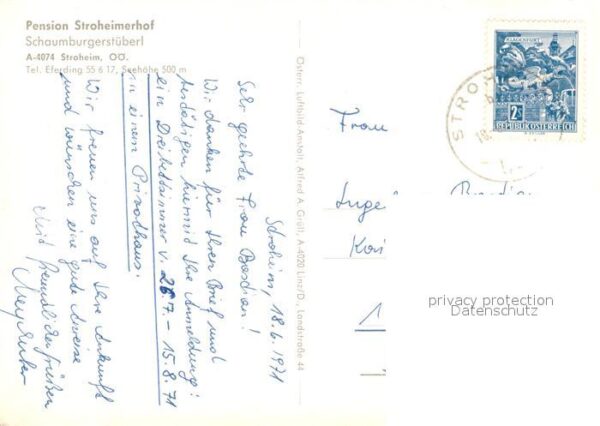 Pension Stroheimerhof
Schaumburgerstüberl
A-4074 Stroheim, OÖ.
Tel. Eferding 55 6 17, Seehöhe 500 m
Stroheim, 18.6.1971
Sehr geehrte Frau Bastian!
Wir danken für Ihren Brief und
bestätigen hiermit Ihre Anmeldung!
ein Dreibettzimmer v. 26.7. - 15.8.71
in einem Privathaus.
Wir freuen uns auf Ihre Ankunft
und wünschen eine gute Anreise
Mit freundlichen Grüßen
Österr. Luftbild-Anstalt, Alfred A. Gruß, A-4020 Linz/D., Landstraße 44
KLAGENFURT
2S
REPUBLIK ÖSTERREICH
STROH
18.
Frau
Inge
1
privacy protection
Datenschutz